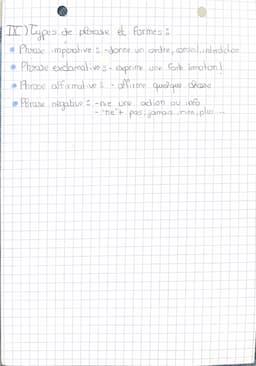 II) Types de phrase et formes :
• Phrase impérative : - donne un ordre, conseil, interdiction
• Phrase exclamative : - exprime une forte émotion !
• Phrase affirmative : - affirme quelque chose
• Phrase négative : - nie une action ou info
- "ne" + pas, jamais, rien, plus ...